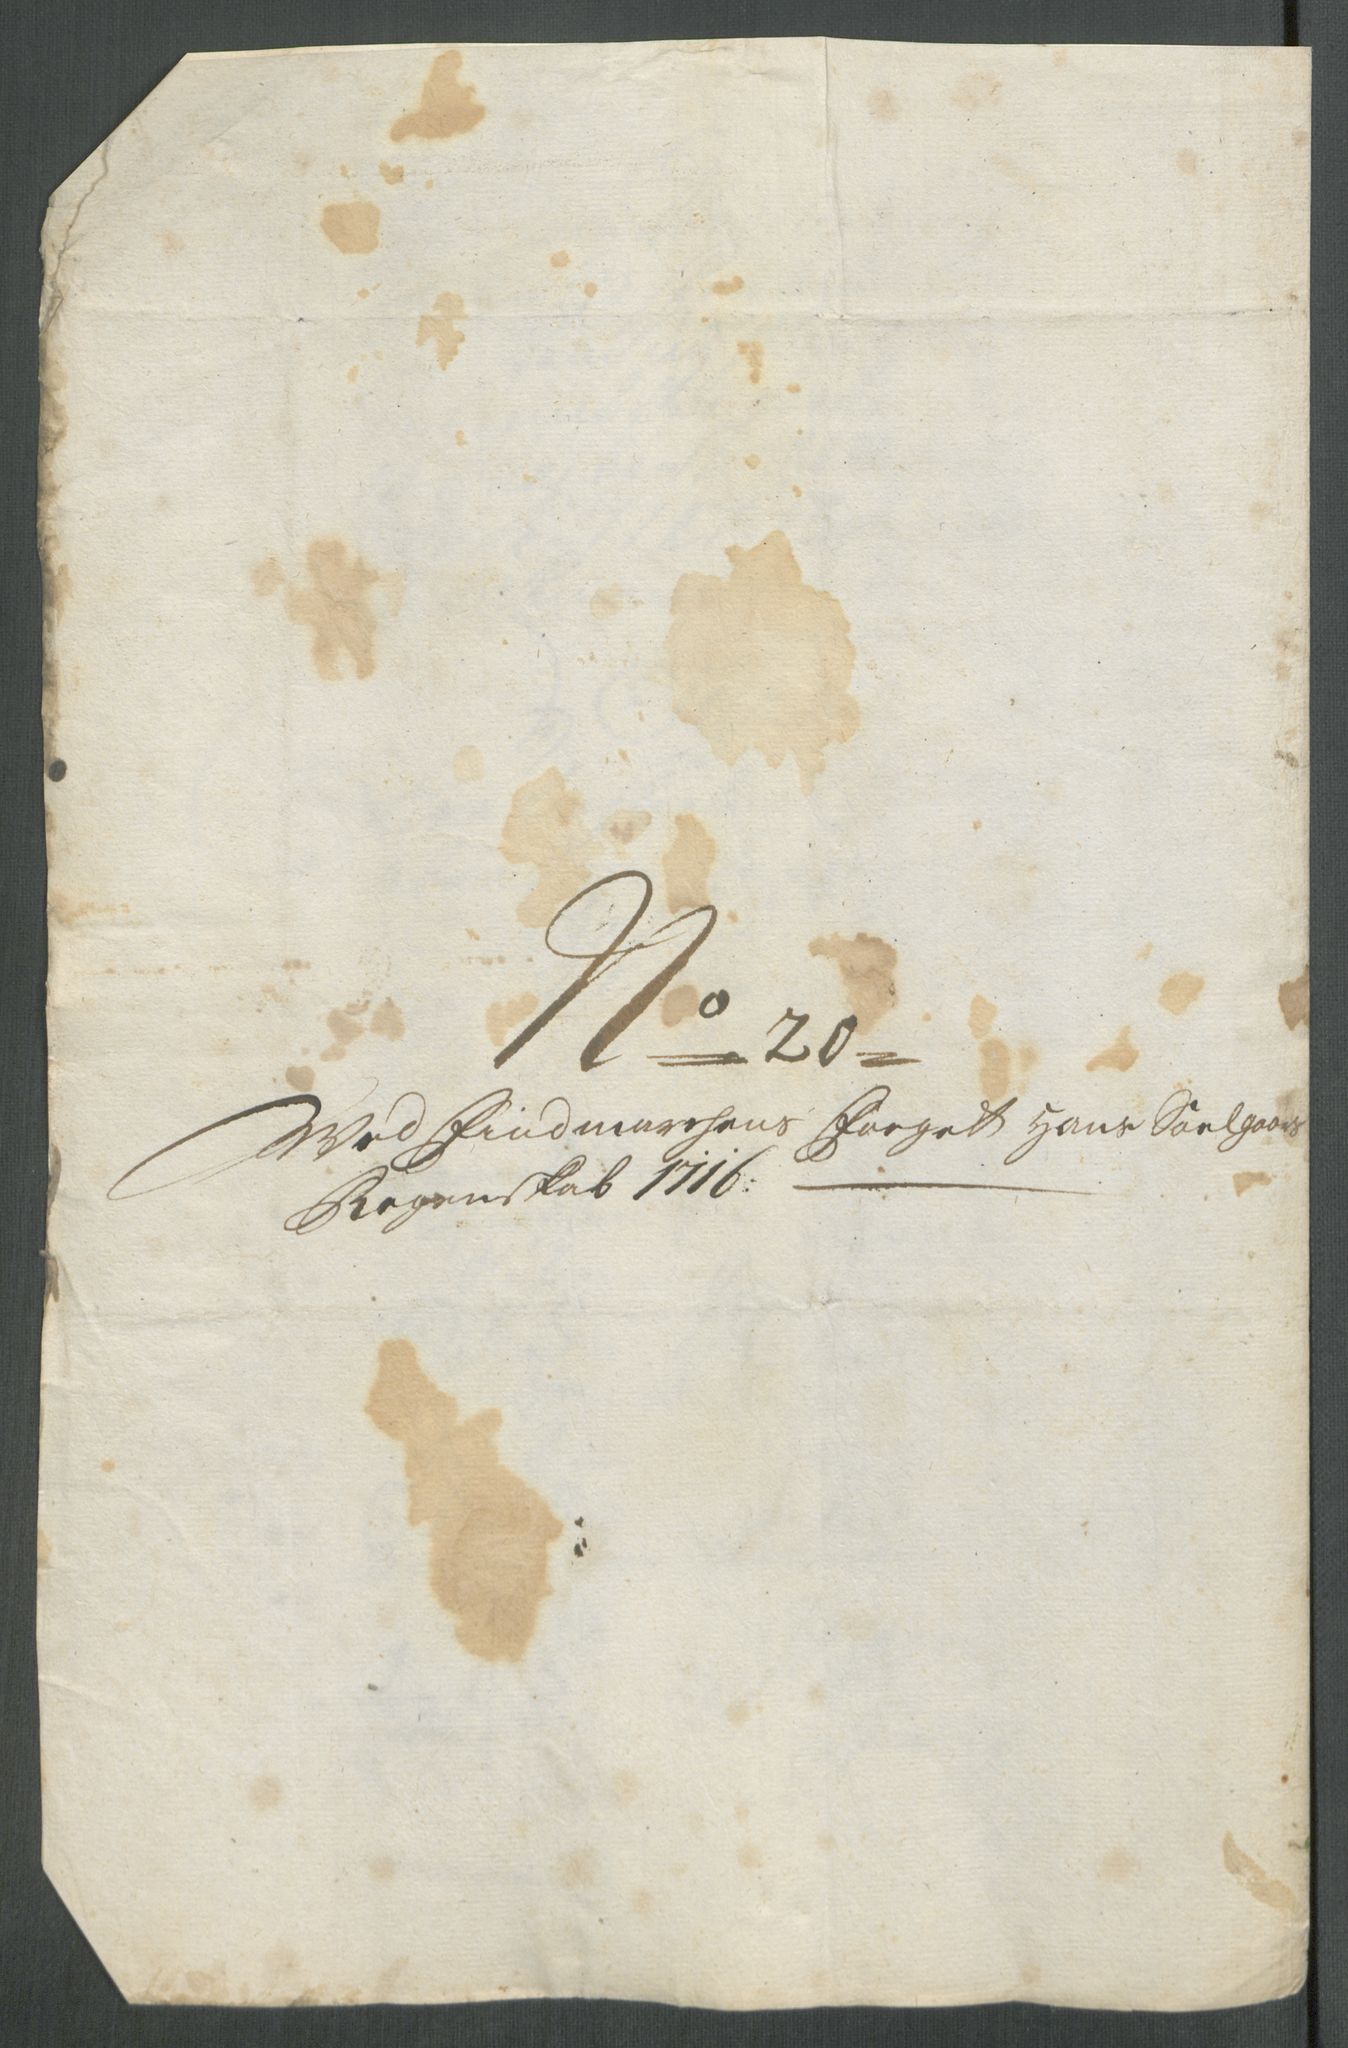 No 20
Wed Findmarchens Forget Hans Soelgaars
Regenskab 1716: